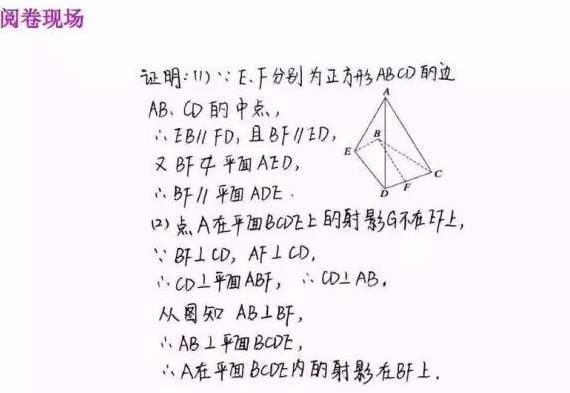 阅卷现场
证明:(1)∵E、F分别为正方形ABCD的边
AB、CD的中点,
∴EB∥FD,且BF∥ED,
又BF⊄平面AED,
∴BF∥平面ADE.
(2)点A在平面BCDE上的射影G不在EF上,
∵BF⊥CD,AF⊥CD,
∴CD⊥平面ABF,∴CD⊥AB,
从图知AB⊥BF,
∴AB⊥平面BCDE,
∴A在平面BCDE内的射影在BF上.
A
B
E
C
D
F